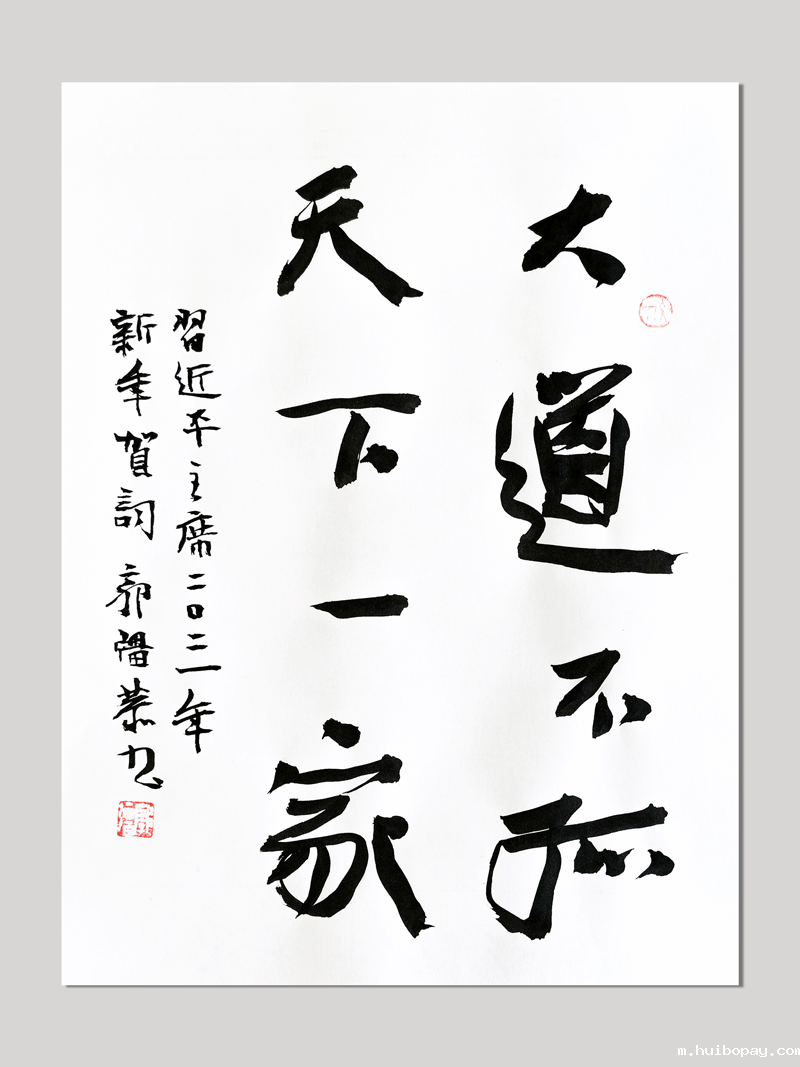 大道不孤
天下一家
習近平主席二〇二一年
新年賀詞 郭 恭书
m.huibopay.com